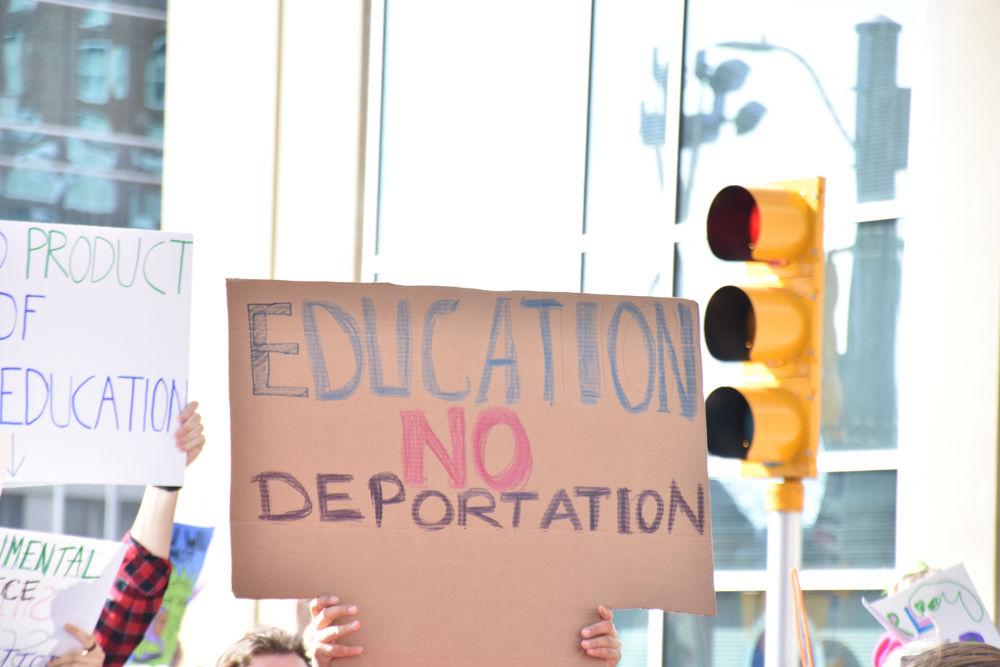 PRODUCT
OF
EDUCATION
EDUCATION
NO
DEPORTATION
MENTAL